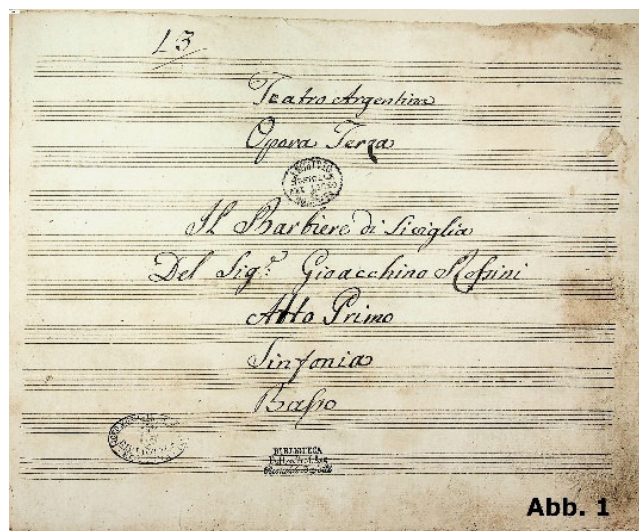 L3
Teatro Argentina
Opera Terza
Il Barbiere di Siviglia
Del Sigr. Gioacchino Rossini
Atto Primo
Sinfonia
Basso
BIBLIOTECA
Abb. 1